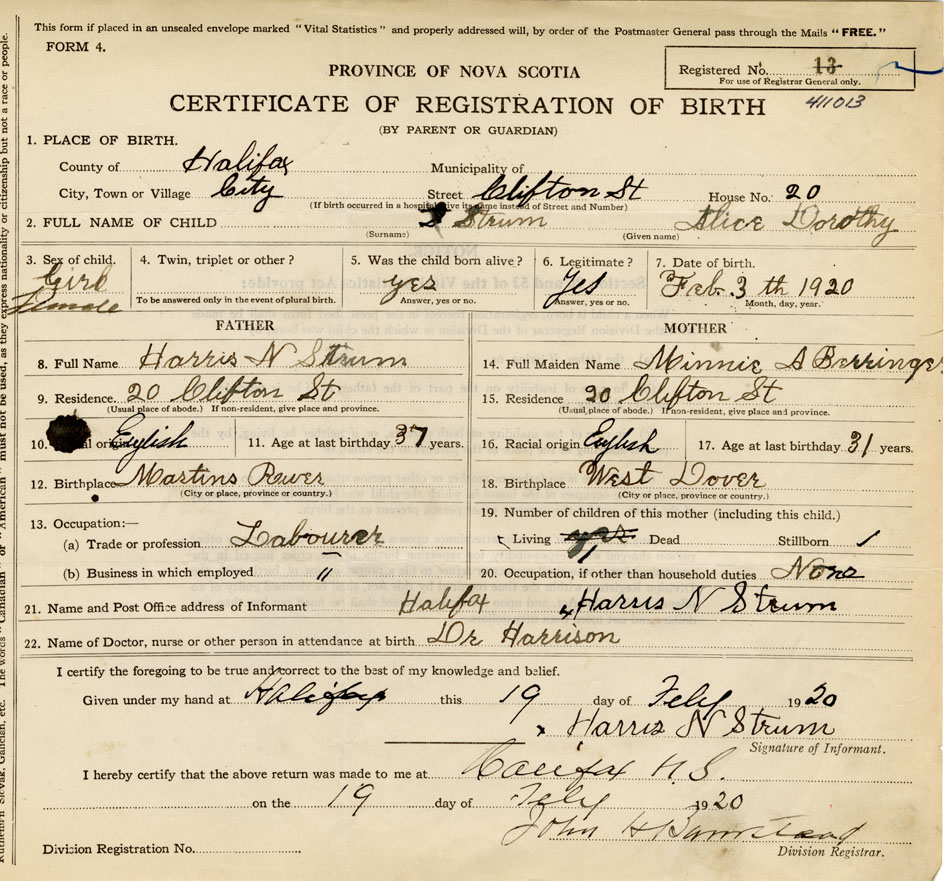 This form if placed in an unsealed envelope marked "Vital Statistics" and properly addressed will, by order of the Postmaster General pass through the Mails "FREE."
FORM 4.
Registered No. 13
For use of Registrar General only.
411013
PROVINCE OF NOVA SCOTIA
CERTIFICATE OF REGISTRATION OF BIRTH
(BY PARENT OR GUARDIAN)
1. PLACE OF BIRTH.
County of Halifax Municipality of
City, Town or Village City Street Clifton St House No. 20
(If birth occurred in a hospital give its name instead of Street and Number)
2. FULL NAME OF CHILD Strum Alice Dorothy
(Surname) (Given name)
3. Sex of child. 4. Twin, triplet or other? 5. Was the child born alive? 6. Legitimate? 7. Date of birth.
Girl yes Yes Feb. 3 th 1920
Female To be answered only in the event of plural birth. Answer, yes or no. Answer, yes or no. Month, day, year.
FATHER MOTHER
8. Full Name Harris N Strum 14. Full Maiden Name Minnie A Berringer
9. Residence. 20 Clifton St 15. Residence 20 Clifton St
(Usual place of abode.) If non-resident, give place and province. (Usual place of abode.) If non-resident, give place and province.
10. origin English 11. Age at last birthday 37 years. 16. Racial origin English 17. Age at last birthday 31 years.
12. Birthplace Martins River 18. Birthplace West Dover
(City or place, province or country.) (City or place, province or country.)
13. Occupation:— 19. Number of children of this mother (including this child.)
(a) Trade or profession Labourer Living 1 Dead Stillborn 1
(b) Business in which employed " 20. Occupation, if other than household duties None
21. Name and Post Office address of Informant Halifax Harris N Strum
22. Name of Doctor, nurse or other person in attendance at birth. Dr Harrison
I certify the foregoing to be true and correct to the best of my knowledge and belief.
Given under my hand at Halifax this 19 day of Feby 1920
x Harris N Strum
Signature of Informant.
I hereby certify that the above return was made to me at Halifax N.S.
on the 19 day of Feby 1920
John H Barnstead
Division Registration No. Division Registrar.